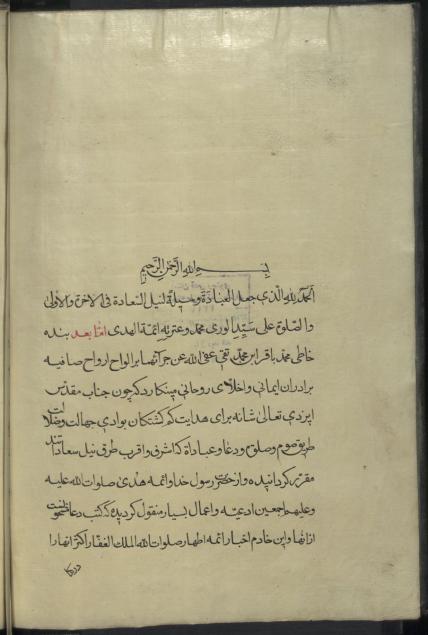 بسم الله الرحمن الرحيم
الحمد لله الذي جعل العبادة وسيلة لنيل السعادة في الاخرة والاولى
والصلوة على سيد الورى محمد وعترته ائمة الهدى اما بعد بنده
خاطی محمد باقر ابن محمد تقی عفی الله عن جرائمهما بر الواح ارواح صافیه
برادران ایمانی و اخلای روحانی مینکارد که چون جناب مقدس
ایزدی تعالی شانه برای هدایت کم کشتکان بوادی جهالت و ضلالت
طریق صوم و صلوة و دعا و عبادات که اشرف و اقرب طرق نیل سعاداتند
مقرر کردانیده و از حضرت رسول خدا و ائمه هدی صلوات الله علیه
وعلیهم اجمعین ادعیه و اعمال بسیار منقول کردیده که کتب دعا مشحونست
از انها و این خادم اخبار ائمه اطهار صلوات الله الملك الغفار اکثر انها را
در